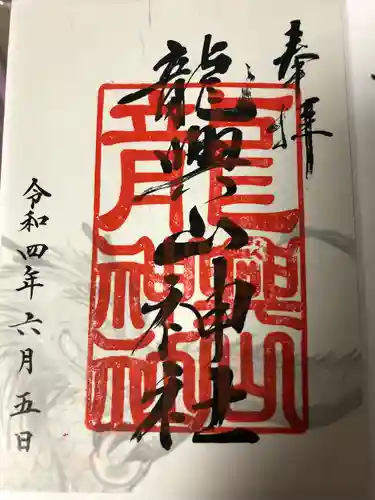 奉拝
龍興山神社
龍興山
神社
令和四年六月五日